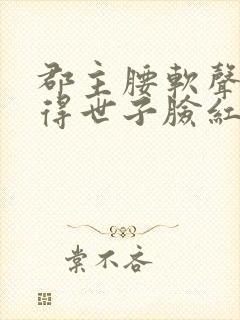 郡主腰軟聲
得世子臉紅
棠不吝